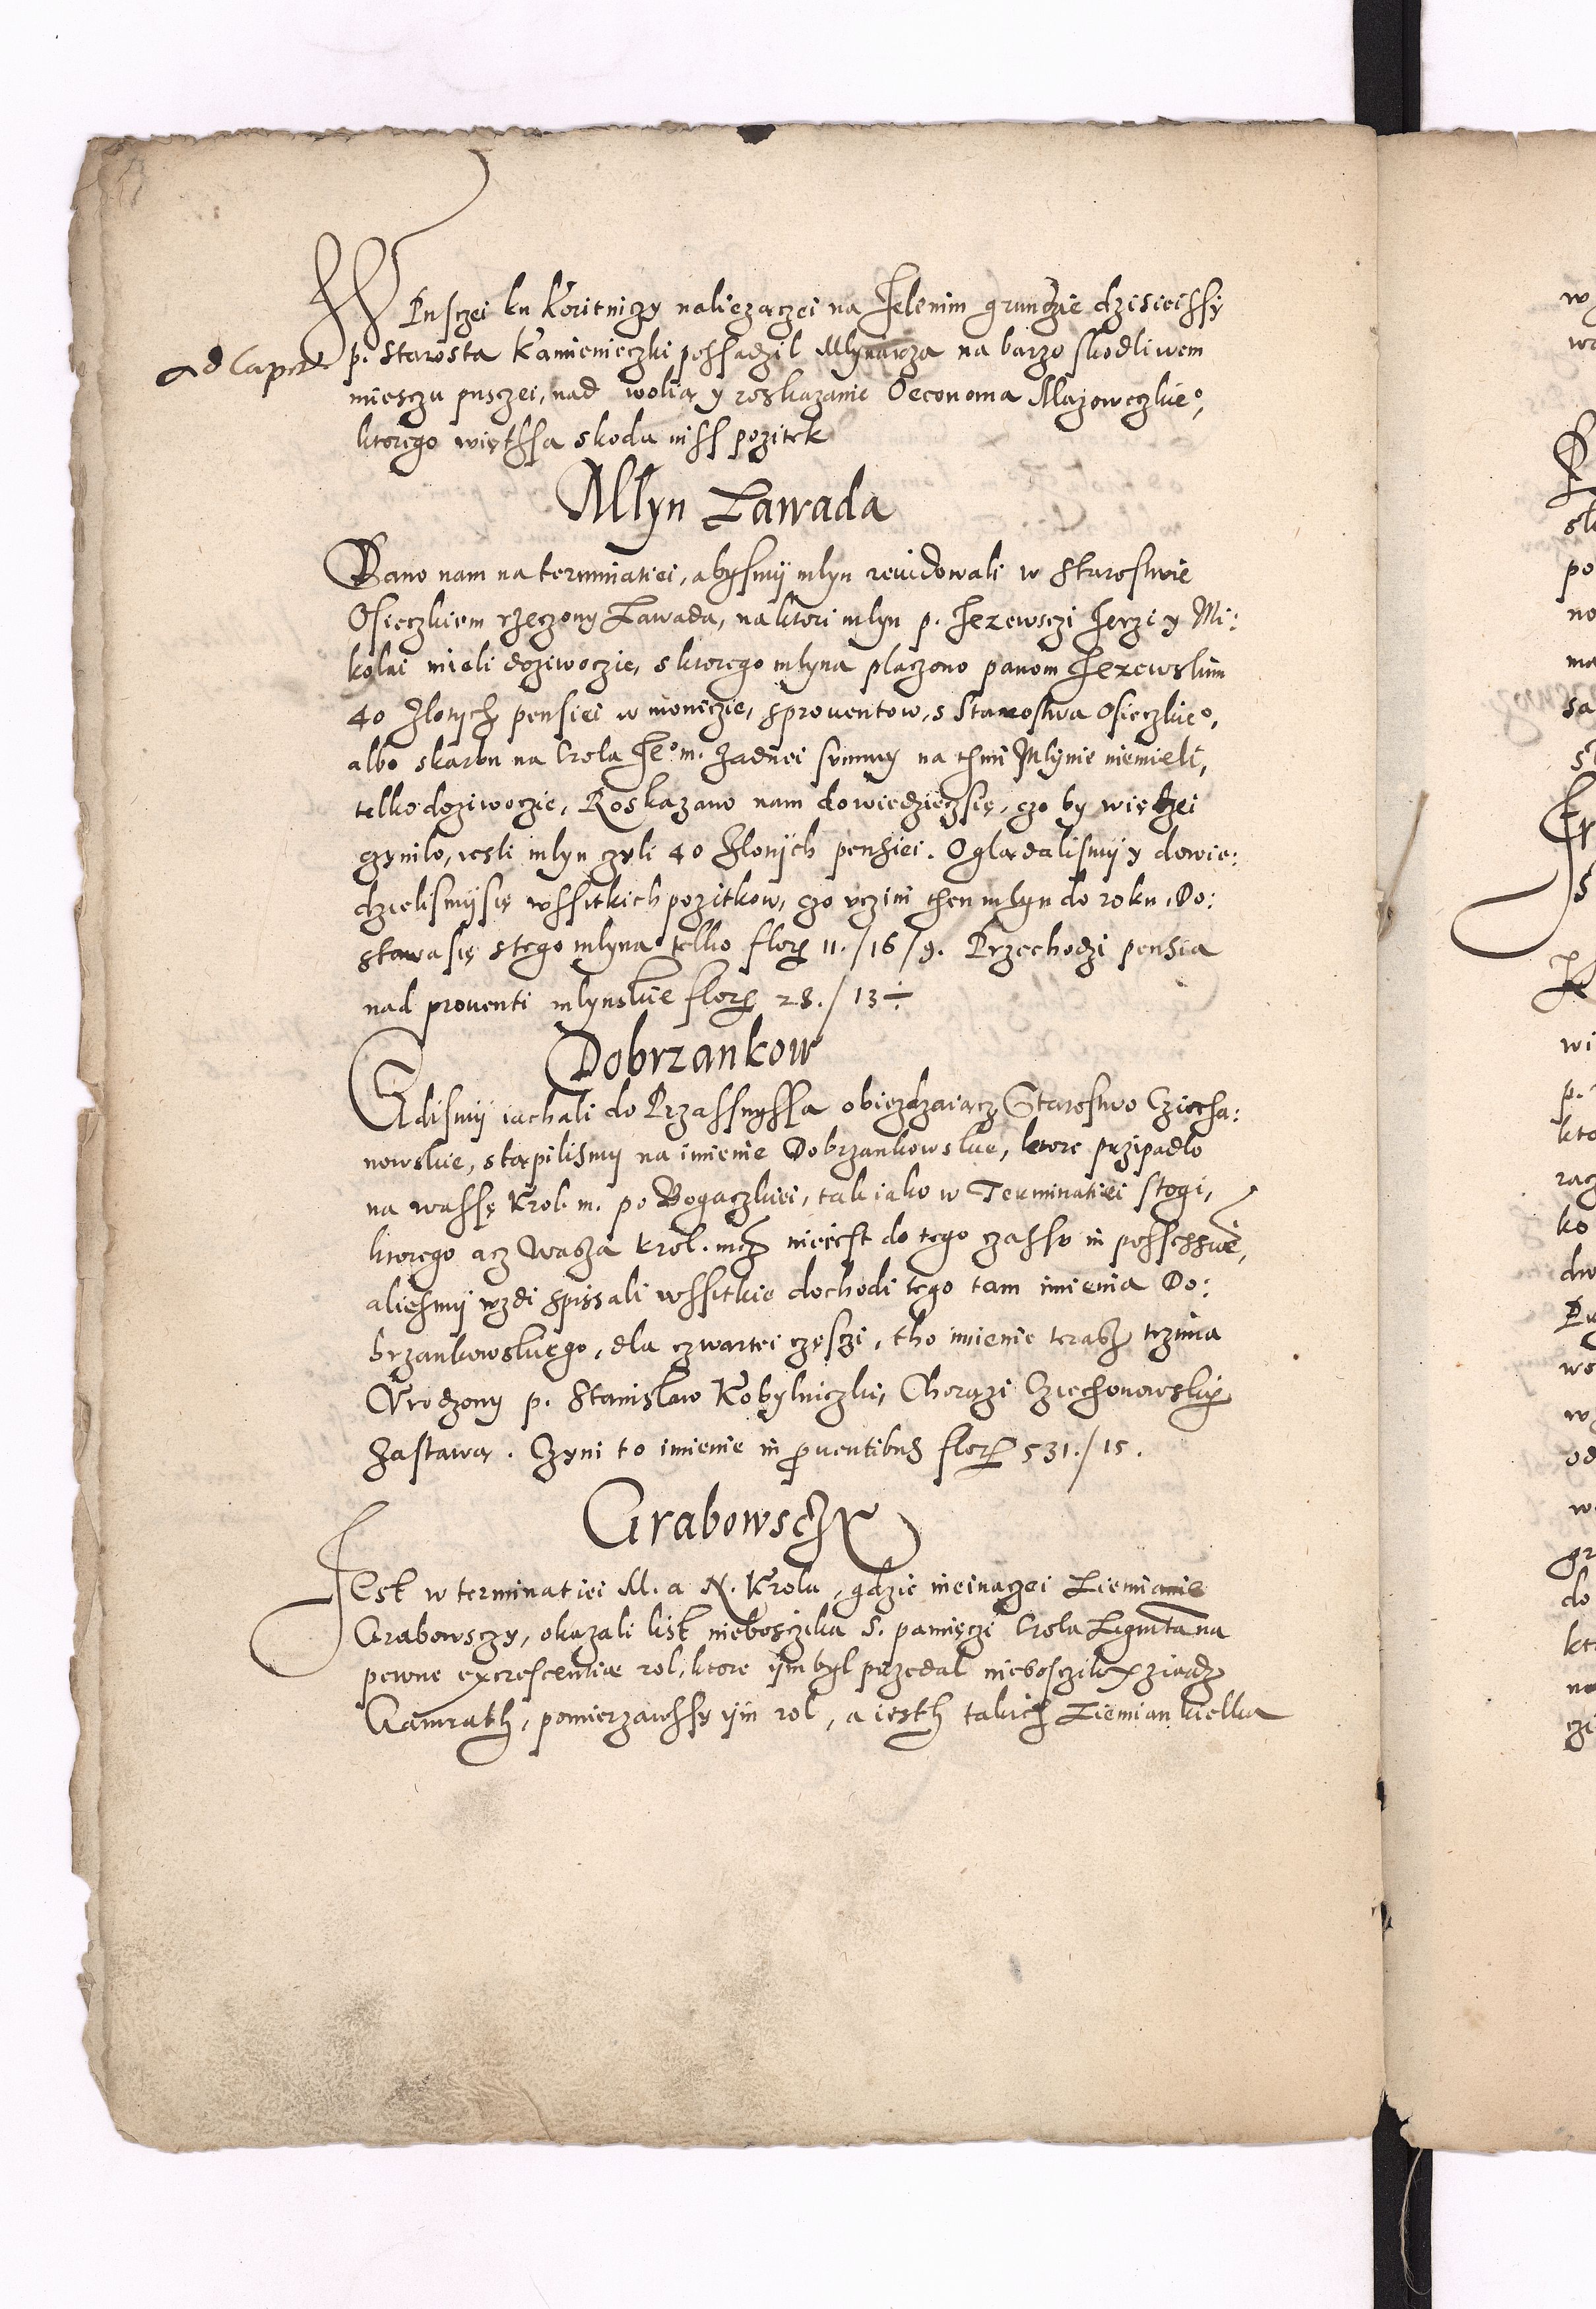 W Pusczei ku Koritniczy należączei na Jelenim gruncżie dzisieissÿ
Ad Capit̃
p. Starosta Kamienieczki possadzil Mlynarza na barzo skodliwem
miesczu pusczei, nad wolią y roskazanie Oeconoma Mazowczkieº,
ktorego więtssa skoda niss pozitek
Mlyn Lawada
Dano nam na terminatiei, abysmÿ mlyn reuidowali w Starostwie
Osieczkiem rzeczony Lawada, na ktori mlyn p. Jezewsczi Jerzi y Mi:
kolai mieli doziwoczie, s ktorego mlyna placzono panom Jezewskim
40 Zlotych pensiei w moniczie, s prouentow, s Starostwa Osieczkieº,
albo skarbu na Crola Jeº m. Zadnei summy na thim Mlynie niemieli,
telko doziwoczie, Roskazano nam dowiedzieczsię, czo by więczei
czynilo, iesli mlyn czyli 40 Zlotÿch pensiei. Oglądalismÿ y dowie:
dzielismÿsię wssitkich pozitkow, czo vczini then mlyn do roku, Do:
stawa się s tego mlyna telko flor 11./16/9. Przechodzi pensia
nad prouenti mlynskie flor 28./13÷
Dobrzankow
Gdismÿ iachali do Przassnyssa obiezdzaiącz Starostwo Cziecha:
nowskie, stąpilismy na imienie Dobrzankowskie, ktore przipadlo
na wassę Krol. m. po Bogaczkiei, tak iako w Terminatiei stogi,
ktorego acz Wasza Krol. mcz nieiest do tego czassu in possessiue,
aliesmÿ wzdi spissali wssitkie dochodi tego tam imienia Do:
brzankowskiego, dla czwartei częsczi, tho imienie teraz trzima
Vrodzony p. Stanislaw Kobylniczki, Chorązi Cziechonowskij
Zastawą. Czyni to imienie in prouentibus flor 531./15.
Grabowsczy
JEst w terminatiei M. a N. Krolu, gdzie nieinaczei Ziemianie
Grabowsczy, okazali list nieboszika S. pamięczi Crola Zigmunta na
pewne excrescentiæ rol, ktore ijm byl przedal niebosczik xziądz
Gamrath, pomierzawssy ijm rol, a iesth takich Ziemian kielka